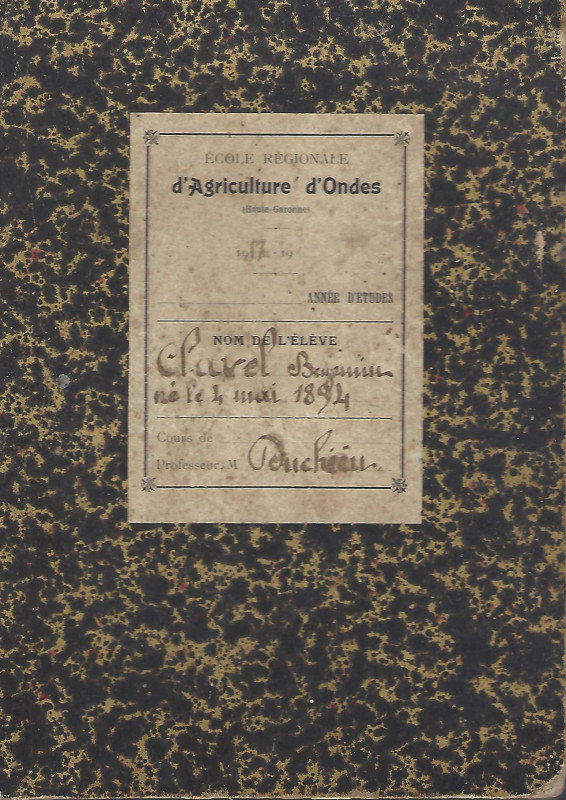 ÉCOLE RÉGIONALE
d'Agriculture d'Ondes
(Haute-Garonne)
1917-19
ANNÉE D'ÉTUDES
NOM DE L'ÉLÈVE
Clavel Benjamin
né le 4 mai 1894
Cours de
Professeur, M